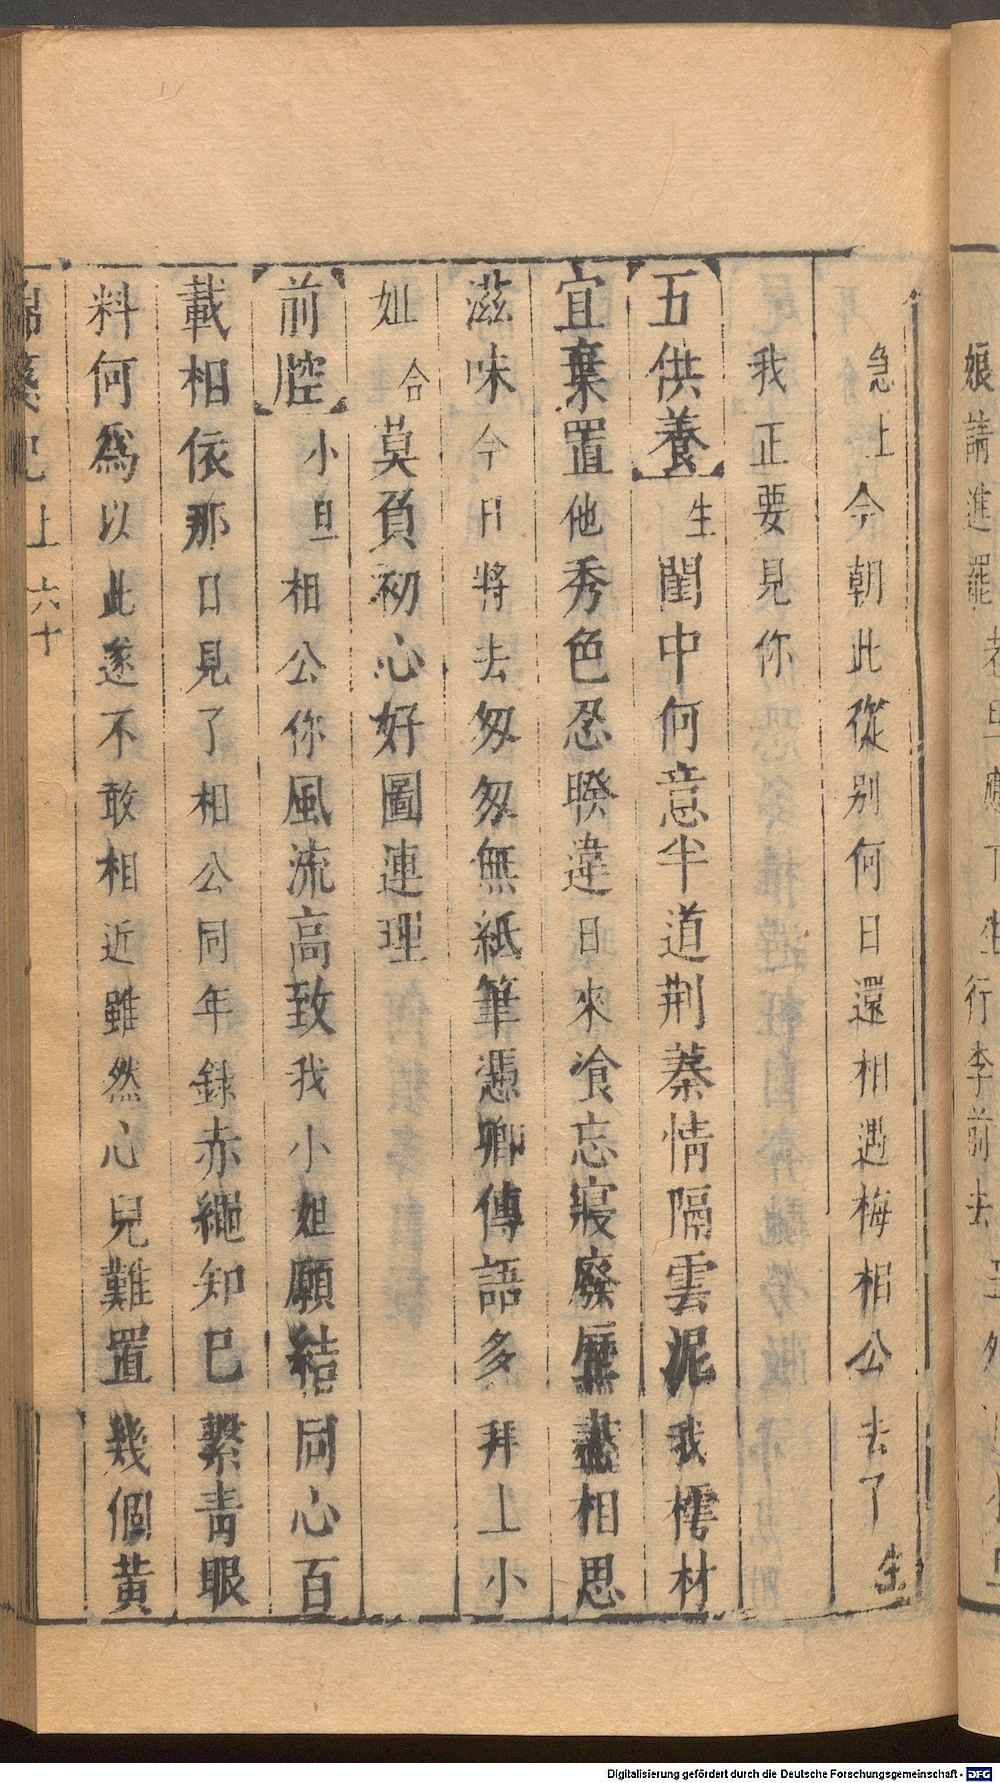 娘請進罷
行李前去
急上今朝此從別何日還相遇梅相公去了生
我正要見你
五供養生閨中何意半道荆蓁情隔雲泥我樗材
宜棄置他秀色忍暌違日來飡忘寢廢歷盡相思
滋味今日將去匆匆無紙筆憑卿傳語多拜上小
姐合莫負初心好圖連理
前腔小旦相公你風流高致我小姐願結同心百
載相依那日見了相公同年錄赤繩知巳繫青眼
料何爲以此遂不敢相近雖然心兒難置幾個黄
錦箋記上六十
Digitalisierung gefördert durch die Deutsche Forschungsgemeinschaft - DFG